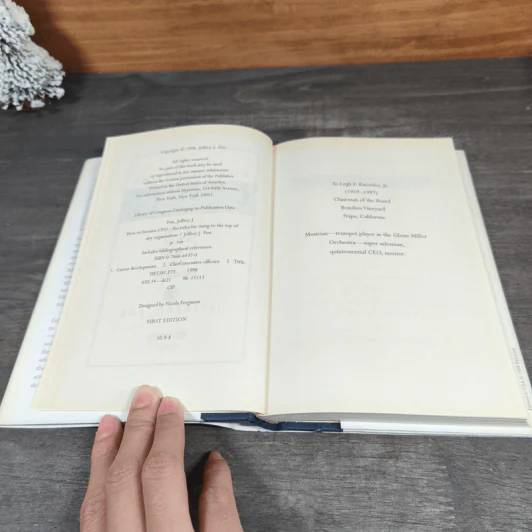 Copyright © 1998, Jeffrey J. Fox
All rights reserved.
No part of this book may be used
or reproduced in any manner whatsoever
without the written permission of the Publisher.
Printed in the United States of America.
For information address Hyperion, 114 Fifth Avenue,
New York, New York 10011.
Library of Congress Cataloging-in-Publication Data
Fox, Jeffrey J.
How to become CEO : the rules for rising to the top of
any organization / Jeffrey J. Fox
p. cm.
Includes bibliographical references.
ISBN 0-7868-6437-0
1. Career development. 2. Chief executive officers. I. Title.
1998
CIP
Designed by Nicola Ferguson
FIRST EDITION
To Legh F.
Chairman of the Board
Beaulieu Vineyard
Napa, California
Musician—trumpet player in the Glenn Miller
Orchestra—super salesman,
quintessential CEO, mentor.